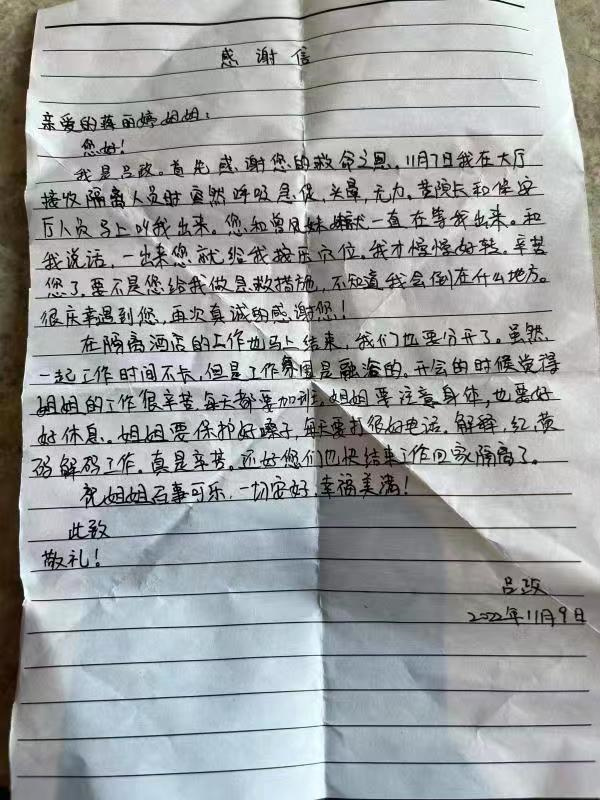 感谢信
亲爱的蒋丽婷姐姐：
您好！
我是吕政。首先感谢您的救命之恩。11月7日我在大厅
接收隔离人员时突然呼吸急促，头晕，无力。黄院长和保安
厅人员马上叫我出来。您和曾凤妹一直在等我出来。和
我说话，一出来您就给我按压穴位。我才慢慢好转。辛苦
您了。要不是您给我做急救措施，不知道我会倒在什么地方。
很庆幸遇到您，再次真诚的感谢您！
在隔离酒店的工作也马上结束，我们也要分开了。虽然
一起工作时间不长，但是工作氛围是融洽的。开会的时候觉得
姐姐的工作很辛苦，每天都要加班，姐姐要注意身体，也要好
好休息。姐姐要保护好嗓子，每天要打很好电话。解释，红，黄
码解码工作。真是辛苦。还好您们也快结束工作回家隔离了。
祝姐姐百事可乐，一切安好，幸福美满！
此致
敬礼！
吕政
2022年11月9日